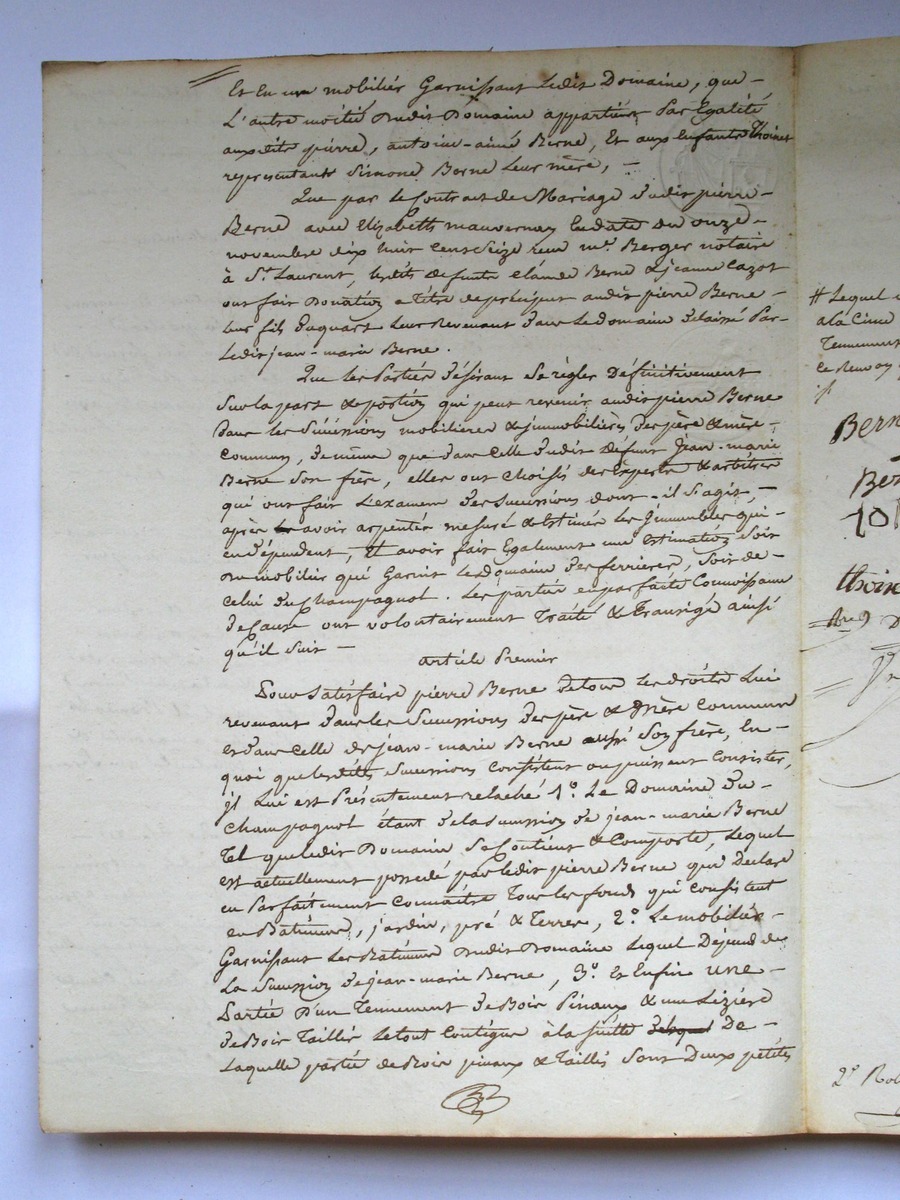 Et En un mobilier Garnissant Ledit Domaine, que -
L'autre moitié dudit Domaine appartient Par Egalité
auxdits pierre, antoine-aimé Berne, Et aux Enfants Thoinet
représentants Simone Berne Leur mère, -
Que par le Contrat de Mariage dudit pierre -
Berne avec Elizabeth mauvernay En date du onze -
novembre dix huit Cent Seize reçu me. Berger notaire
à St. Laurent, lesdits défunts Claude Berne & jeanne Cazot
ont fait Donation a titre de préciput audit pierre Berne -
leur fils Du quart Leur Revenant dans Le domaine délaissé Par
Ledit jean-marie Berne.
Que les Parties désirant Se règler Définitivement
Sur la part & portion qui peut revenir audit pierre Berne
Dans les Successions mobilières & jmmobilières des père & mère -
Communs, de même que dans Celle dudit Défunt Jean-marie
Berne Son frère, elles ont Choisis des Experts & arbitres
qui ont fait L'examen des Successions dont-il S'agit, -
après avoir arpentés mesuré & Estimés les jmmeubles qui -
en dépendent, Et avoir fait Egalement une Estimation Soit
du mobilier qui Garnit le domaine des ferrieres, Soit de -
Celui du Champagnol. Les parties en parfaite Connoissance
de Cause ont volontairement Traité & Transigé ainsi
qu'il Suit -
article Premier
Pour Satisfaire pierre Berne de tous les droits Lui
revenant dans les Successions des père & Mère Communs
et dans Celle de jean-marie Berne aussi Son frère, En -
quoi que lesdittes Successions Consistent ou puissent Consister,
jl Lui est Présentement relaché 1º. Le Domaine du -
Champagnol étant de la Succession de jean-marie Berne
Tel que ledit Domaine Se Contient & Comporte, Lequel
est actuellement possedé par ledit pierre Berne qui Déclare
en Parfaitement Connaitre Tous les fonds qui Consistent
en Batiments, jardin, pré & Terres, 2º. Le mobilier -
Garnissant les Batiments dudit Domaine Lequel Dépend de
La Succession de jean-marie Berne, 3º. Et Enfin une -
Partie D'un Tennement de Bois Pinaux & une Lizière
de Bois Taillés Le tout Contigue à la suitte de
Laquelle partie de Bois pinaux & Taillés Sont Deux petites
# Lequel
a la Cime
Tennement
Ce Renvoy
Bern
Be
thoin
2e Rol